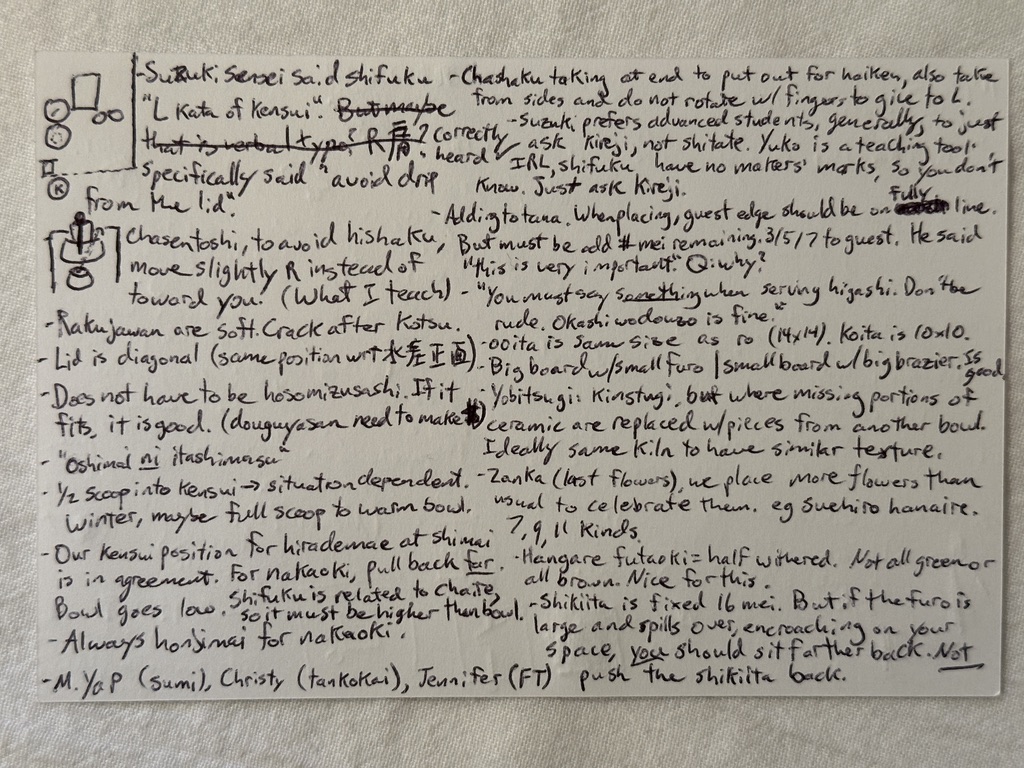 -Suzuki Sensei said shifuku
"L Kata of Kensui". But maybe
that is verbal typo? R肩? correctly heard ✓
specifically said "avoid drip
from the lid".
K
Chasentoshi, to avoid hishaku,
move slightly R instead of
toward you. (What I teach)
-Raku jawan are soft. Crack after Kotsu.
-Lid is diagonal (same position wrt 水差正面)
-Does not have to be hosomizusashi. If it
fits, it is good. (douguyasan need to make $)
-"Oshimai ni itashimasu"
-1/2 scoop into Kensui → situation dependent.
Winter, maybe full scoop to warm bowl.
-Our Kensui position for hirademae at shimai
is in agreement. For nakaoki, pull back far.
Bowl goes low. Shifuku is related to chaire,
so it must be higher than bowl.
-Always honjimai for nakaoki.
-M. Yap (sumi), Christy (tankokai), Jennifer (FT)
-Chashaku taking at end to put out for haiken, also take
from sides and do not rotate w/ fingers to give to L.
-Suzuki prefers advanced students, generally, to just
ask kireji, not shitate. Yuko is a teaching tool.
IRL, shifuku have no makers' marks, so you don't
Know. Just ask Kireji.
-Adding to tana. When placing, guest edge should be on fully line.
But must be add # mei remaining. 3/5/7 to guest. He said
"this is very important." Q: why?
-"You must say something when serving higashi. Don't be
rude. Okashi wo douzo is fine."
-ooita is same size as ro (14x14). Koita is 10x10.
-Big board w/small furo | small board w/big brazier. Is good.
-Yobitsugi: Kinstugi, but where missing portions of
ceramic are replaced w/pieces from another bowl.
Ideally same Kiln to have similar texture.
-Zanka (last flowers), we place more flowers than
usual to celebrate them. eg Suehiro hanaire.
7, 9, 11 Kinds.
-Hangare futaoki = half withered. Not all green or
all brown. Nice for this.
-Shikiita is fixed 16 mei. But if the furo is
large and spills over, encroaching on your
space, you should sit farther back. Not
push the shikiita back.